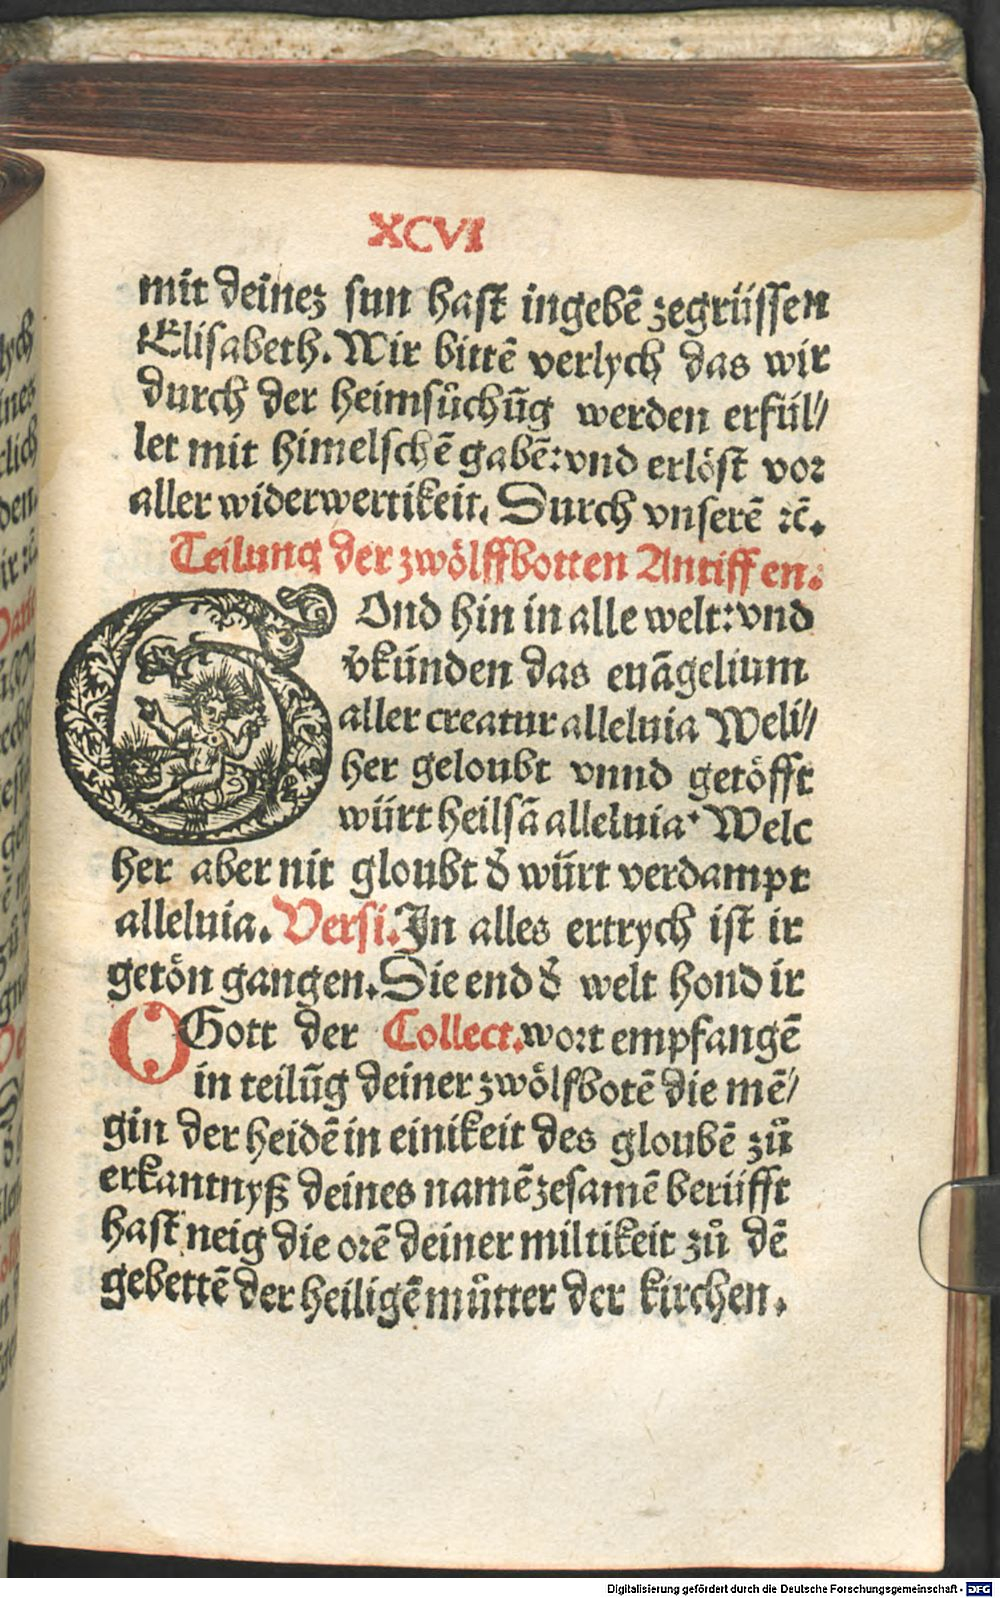 XCVI
mit deinez sun hast ingebẽ zegrüssen
Elisabeth. Wir bittẽ verlych das wir
durch der heimsůchũg werden erfül⸗
let mit himelschẽ gabẽ: vnd erlöst vor
aller widerwertikeit. Durch vnserẽ ⁊c̃.
Teilung der zwölffbotten Antiffen.
GOnd hin in alle welt: vnd
v̾künden das euãgelium
aller creatur alleluia Weli⸗
her geloubt vnnd getöfft
würt heilsã alleluia. Welc
her aber nit gloubt d̾ würt verdampt
alleluia. Versi. In alles ertrych ist ir
getön gangen. Die end d̾ welt hond ir
OGott der Collect. wort empfangẽ
in teilũg deiner zwölfbotẽ die mẽ⸗
gin der heidẽ in einikeit des gloubẽ zů
erkantnyß deines namẽ zesamẽ berüfft
hast neig die orẽ deiner miltikeit zů dẽ
gebettẽ der heiligẽ můtter der kirchen.
Digitalisierung gefördert durch die Deutsche Forschungsgemeinschaft - DFG